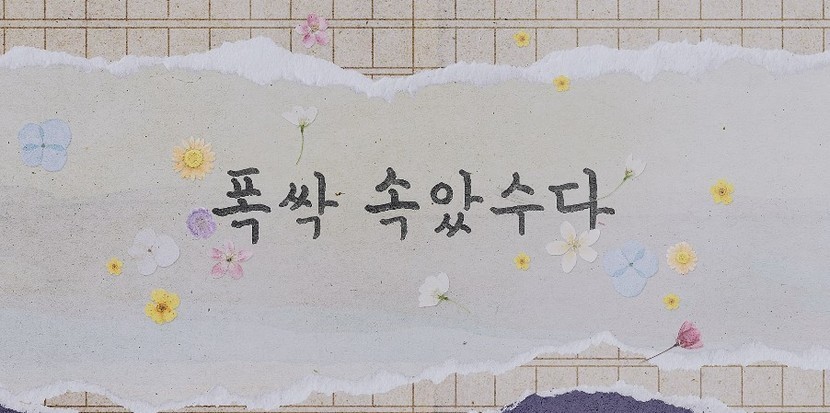 폭싹 속았수다